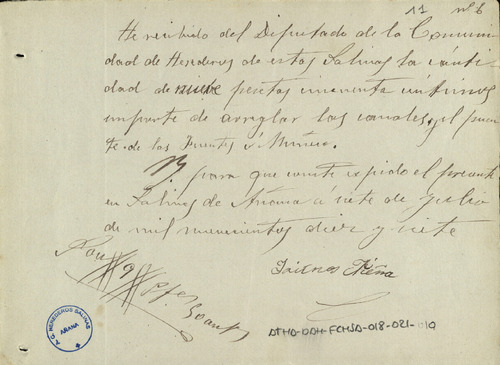 11 nº 6
He recibido del Diputado de la Comuni
dad de Herederos de estas Salinas la canti
dad de nueve pesetas cincuenta céntimos
importe de arreglar los canales, y el puen
te de las Fuentes á
Y para que conste expido el presente
en Salinas de Añana á siete de Julio
de mil novecientos diez y siete
T. G. HEREDEROS SALINAS
AÑANA
ATHA-DAH-FCHSA-018-021-010